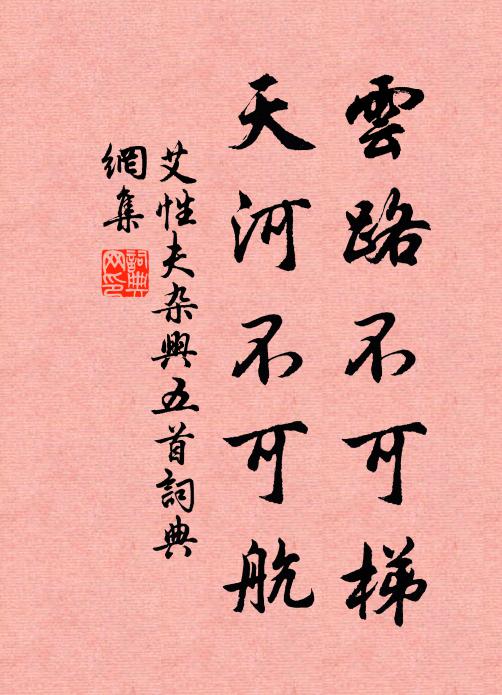 雲路不可梯
天河不可航
艾性夫杂興五首詞典
網集
詞典网印